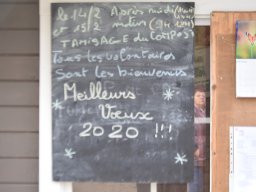 le 14/2 Après midi
et 15/2 matin (9H 12H)
TAMISAGE du COMPOST
Tous les volontaires
Sont les bienvenus
Meilleurs
Vœux
2020 !!!